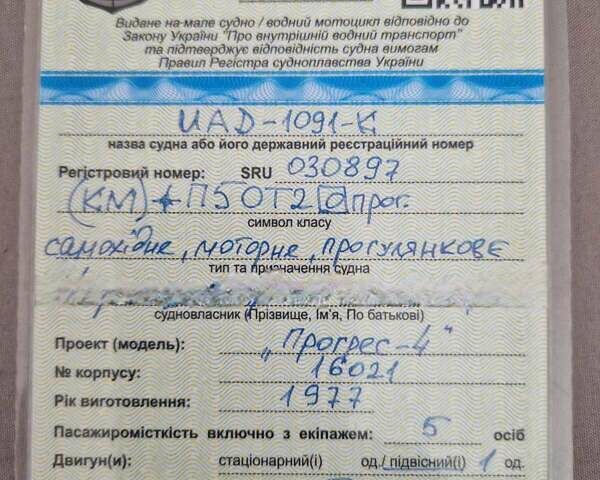 Видане на мале судно / водний мотоцикл відповідно до
Закону України "Про внутрішній водний транспорт"
та підтверджує відповідність судна вимогам
Правил Регістра судноплавства України
UAD-1091-K
назва судна або його державний реєстраційний номер
Регістровий номер: SRU 030897
(КМ) П5 ОТ2 прог.
символ класу
самохідне, моторне, прогулянкове
тип та призначення судна
судновласник (Прізвище, Ім'я, По батькові)
Проект (модель): „Прогрес-4"
№ корпусу: 16021
Рік виготовлення: 1977
Пасажиромісткість включно з екіпажем: 5 осіб
Двигун(и): стаціонарний(і) од./ підвісний(і) 1 од.